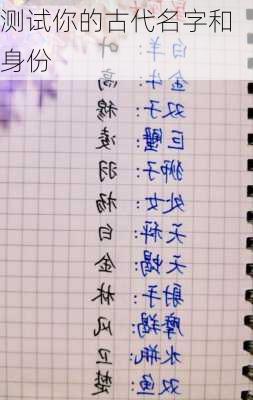 测试你的古代名字和
身份
白羊：叶
金牛：高
双子：穆
巨蟹：凌
狮子：羽
处女：杨
天秤：白
天蝎：金
射手：林
摩羯：风
水瓶：卫
双鱼：楚